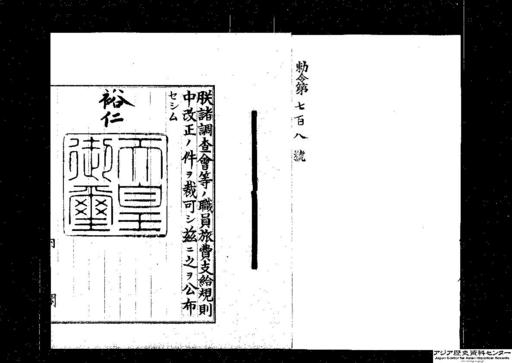 勅令第七百八號
朕諸調査會等ノ職員旅費支給規則
中改正ノ件ヲ裁可シ茲ニ之ヲ公布
セシム
裕仁
天皇
御璽
アジア歴史資料センター
Japan Center for Asian Historical Records